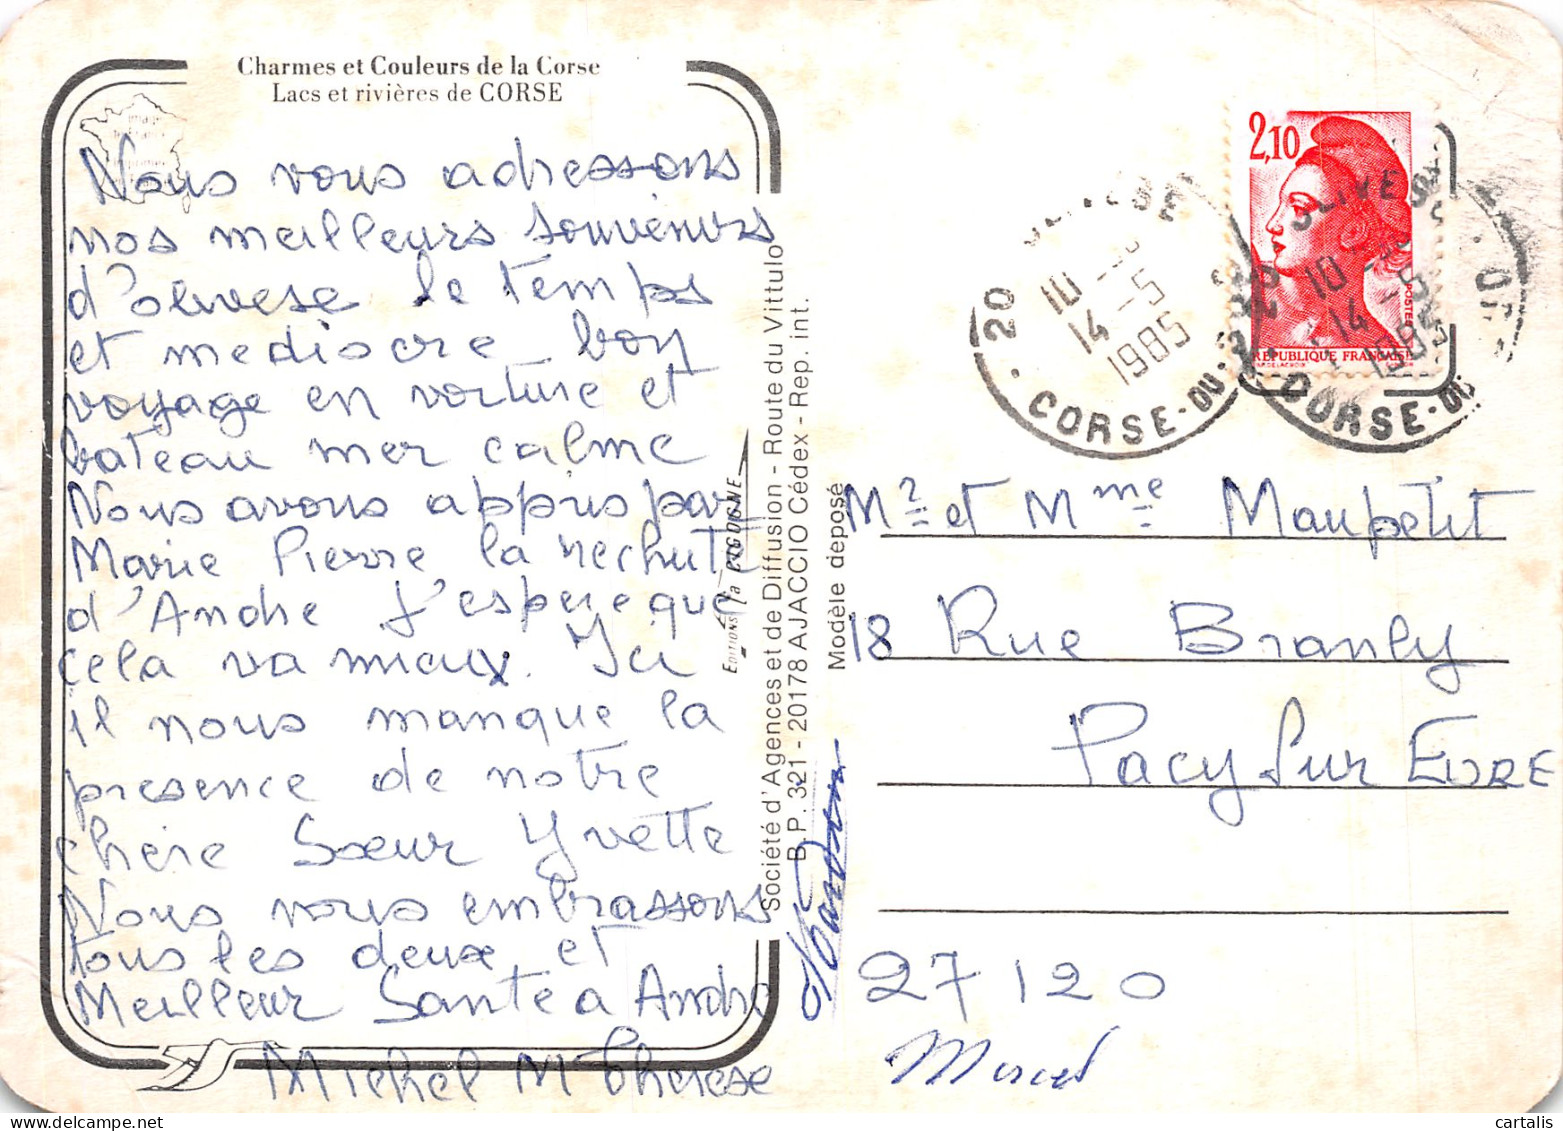 Charmes et Couleurs de la Corse
Lacs et rivières de CORSE
Nous vous adressons
nos meilleurs souvenirs
d'olivese le temps
et mediocre bon
voyage en voiture et
bateau mer calme
Nous avons appris par
Marie Pierre la rechute
d'Andre J'espere que
cela va mieux. Ici
il nous manque la
presence de notre
chere Sœur Yvette
Nous vous embrassons
tous les deux et
Meilleur Sante a Andre
Michel M Therese
EDITIONS la CIGOGNE
Société d'Agences et de Diffusion - Route du Vittulo
B.P. 321 - 20178 AJACCIO Cédex - Rep. int.
Modèle deposé
2,10
REPUBLIQUE FRANÇAISE
POSTES
20 OLIVESE
10 -
14 - 5
1985
CORSE-DU-
OLIVESE
10
14 - 5
1985
CORSE-DU
Mr et Mme Maupetit
18 Rue Branly
Pacy Sur EURE
27120
Marcel
cartalis